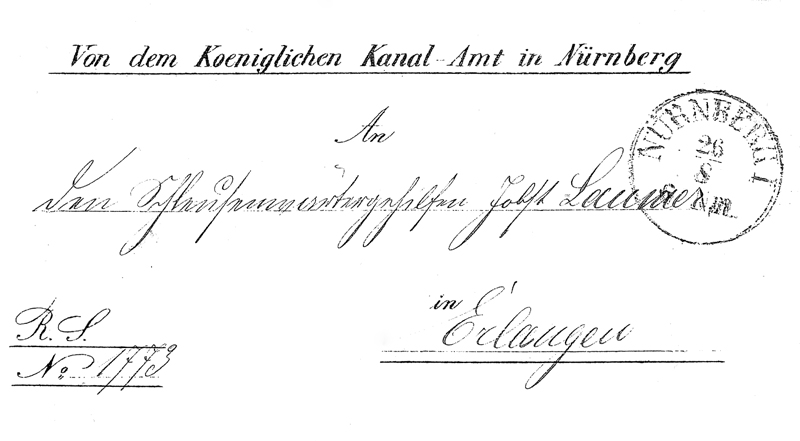 Von dem Koeniglichen Kanal-Amt in Nürnberg
NÜRNBERG I
26
8
An
den Schleusenwärtergehilfen Jobst Laumer
in
Erlangen
R. S.
No. 1773